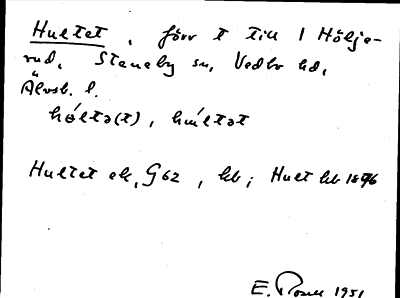 Hultet, förr t till 1 Hölje-
rud, Steneby sn, Vedbo hd,
Älvsb. l.
hóltə(t), hùltət
Hultet ek, G62, kb; Hult kb 1896
E. Rosell 1951